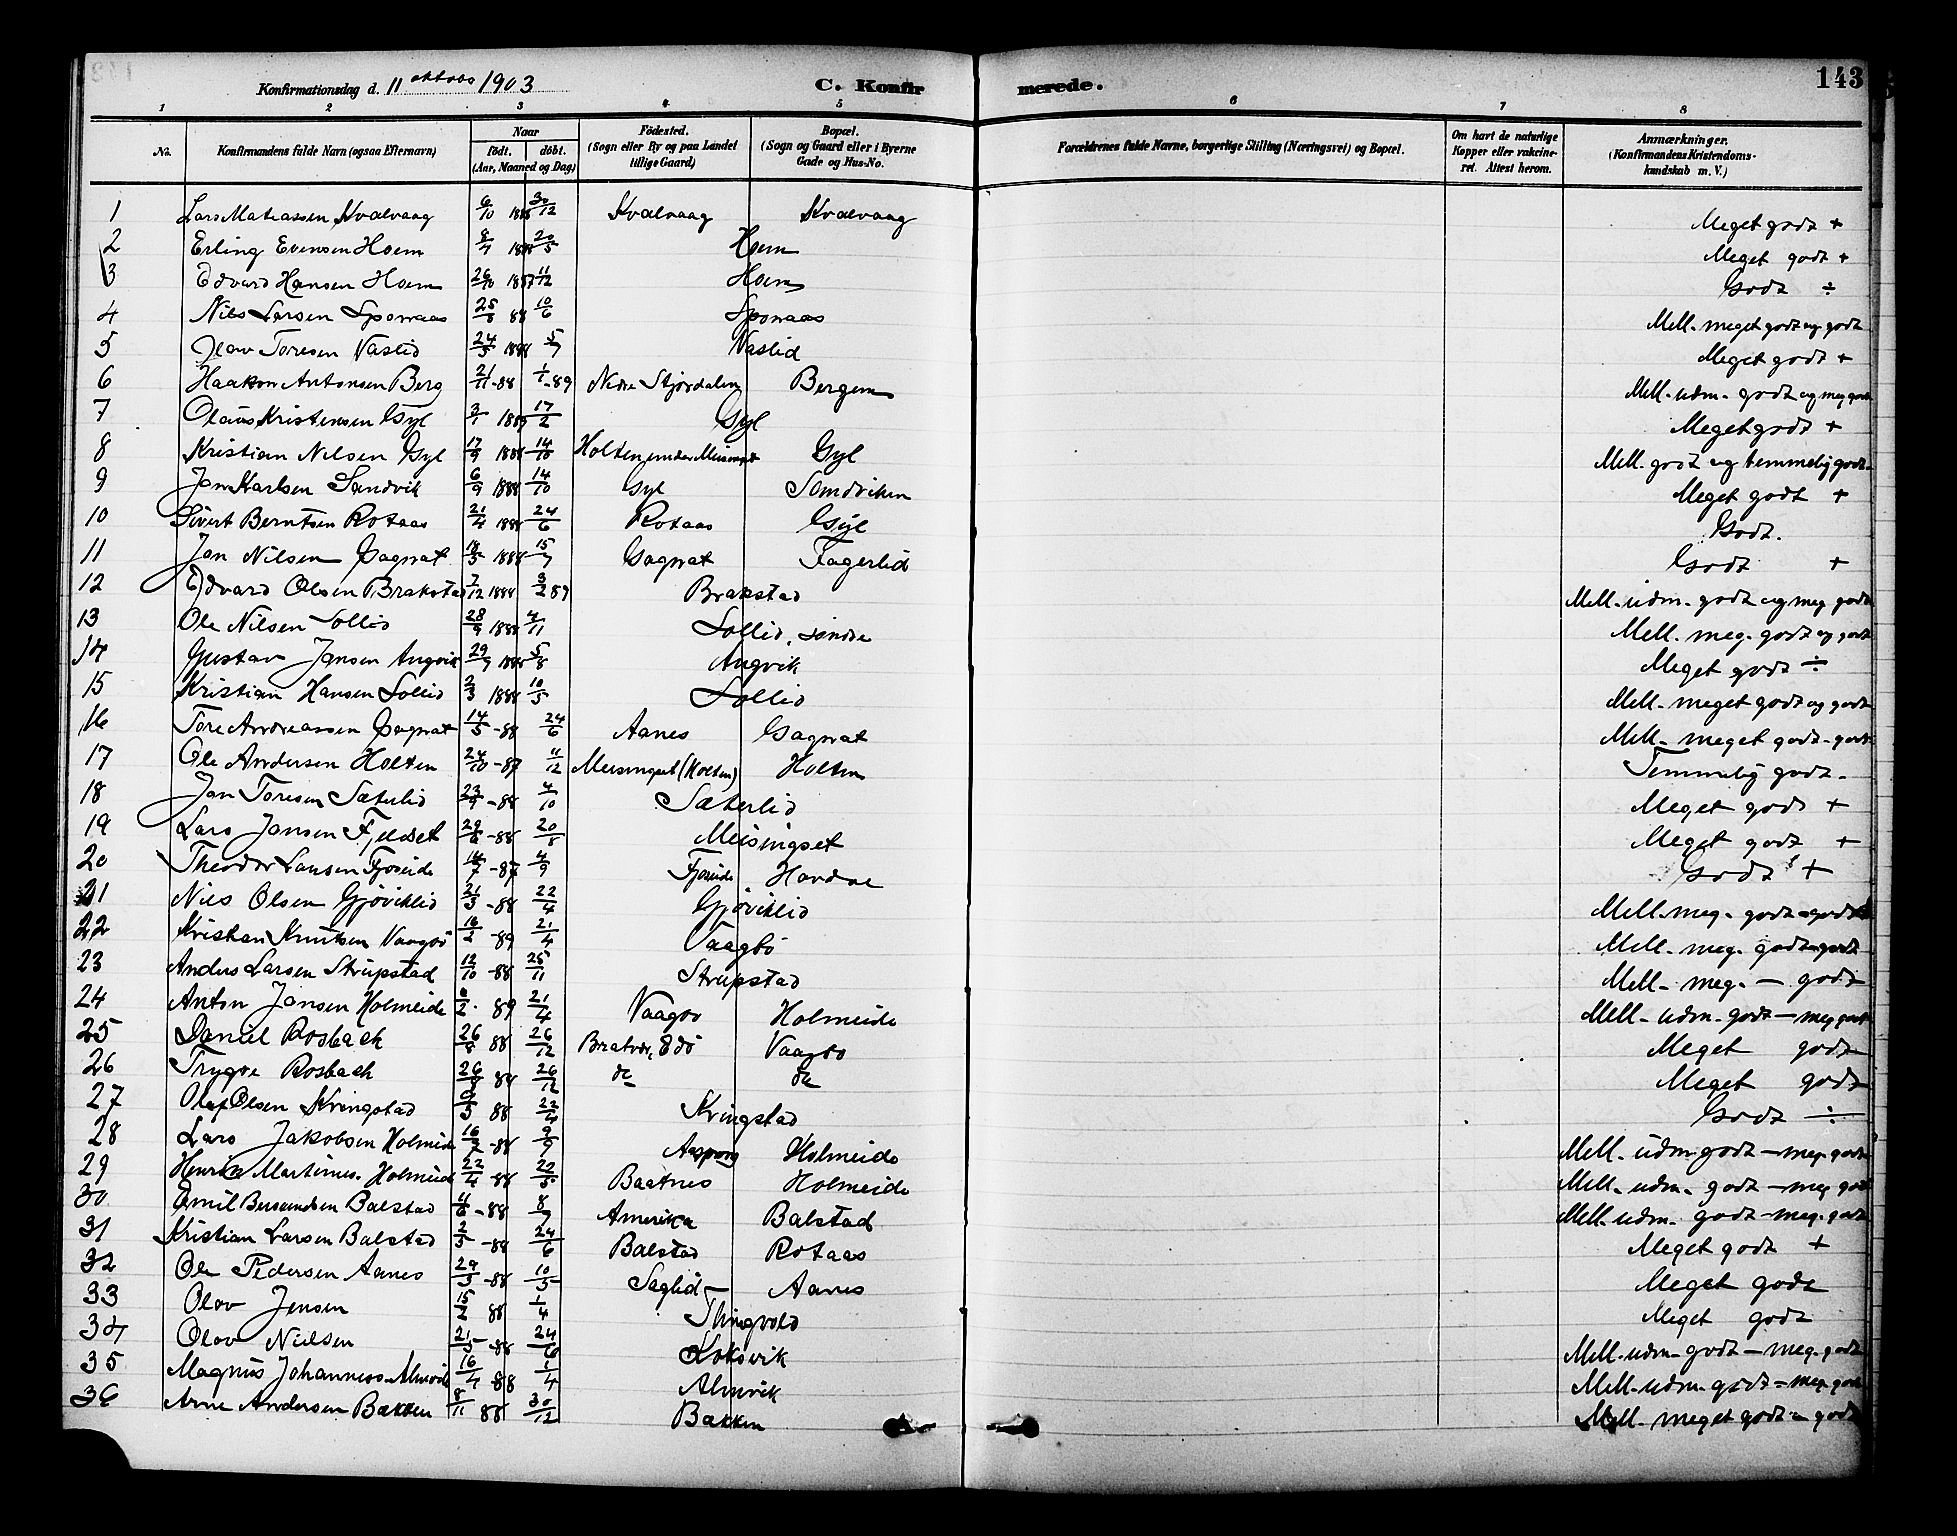 Konfirmationsdag d. 11 oktober 1903 C. Konfirmerede. 143
1 2 3 4 5 6 7 8
No. Konfirmandens fulde Navn (ogsaa Efternavn) Naar födt. döbt. (Aar, Maaned og Dag) Födested. (Sogn eller By og paa Landet tillige Gaard) Bopæl. (Sogn og Gaard eller i Byerne Gade og Hus-No. Forældrenes fulde Navne, borgerlige Stilling (Næringsvei) og Bopæl. Om havt de naturlige Kopper eller vakcineret. Attest herom. Anmærkninger. (Konfirmandens Kristendomskundskab m. V.)
1 Lars Matiassen Kvalvaag 6/10 1888 30/12 Kvalvaag Kvalvaag Meget godt +
2 Erling Evensen Hoem 8/4 1888 20/5 Hoem Meget godt +
3 Edvard Hansen Hoem 26/10 1887 11/12 Hoem Godt ÷
4 Nils Larsen Sponaas 25/8 88 10/6 Sponaas Mell. meget godt og godt
5 Olav Toresen Vaslid 24/5 1888 5/7 Vaslid Meget godt +
6 Haakon Antonsen Berg 21/11 -88 1/1 -89 Nedre Stjørdalen Bergem Mell. udm. godt og meg godt
7 Olaus Kristensen Gyl 3/1 1889 17/2 Gyl Meget godt +
8 Kristian Nilsen Gyl 17/9 1888 14/10 Holten under Meisingset Gyl Mell. godt og temmelig godt.
9 Jon Karlsen Sandvik 6/9 1888 14/10 Gyl Sandviken Meget godt +
10 Sivert Berntsen Rotaas 21/4 1888 24/6 Rotaas Gyl Godt.
11 Jon Nilsen Gagnat 18/5 1888 15/7 Gagnat Fagerlid Godt +
12 Edvard Olsen Brakstad 7/12 1888 3/2 89 Brakstad Mell. udm. godt og meg godt
13 Ole Nilsen Sollid 28/9 1888 4/11 Sollid, søndre Mell. meg. godt og godt
14 Gustav Jansen Angvik 29/7 1888 5/8 Angvik Meget godt ÷
15 Kristian Hansen Sollid 2/3 1888 10/5 Sollid Mell. meget godt og godt
16 Tore Andreassen Gagnat 14/5 -88 24/6 Aanes Gagnat Mell. meget godt - godt
17 Ole Andersen Holten 24/10 -87 11/12 Meisingset (Holten) Holten Temmelig godt.
18 Jon Toresen Sæterlid 23/9 -88 4/10 Sæterlid Meget godt +
19 Lars Jansen Fjeldset 29/6 -88 20/8 Meisingset Meget godt +
20 Theodor Larsen Fjøseide 14/7 -87 4/9 Fjøseide Godt +
21 Nils Olsen Gjøviklid 21/3 -88 22/4 Gjøviklid Mell. meg. godt - godt
22 Kristian Knutsen Vaagbø 16/2 -89 21/4 Vaagbø Mell. meg. godt - godt
23 Anders Larsen Strupstad 12/10 -88 25/11 Strupstad Mell. meg. — godt
24 Anton Jansen Holmeide 89 21/4 Vaagbø Holmeide Mell. udm. godt — meg godt
25 Daniel Rosbach 26/8 88 26/12 Bratvær, Edø Vaagbø Meget godt
26 Trygve Rosbach 26/8 88 26/12 do do Meget godt
27 Olaf Olsen Kringstad 9/3 88 22/4 Kringstad Godt ÷
28 Lars Jakobsen Holmeide 16/7 -88 9/9 Aspøy Holmeide Mell. udm. godt — meg. godt
29 Henrik Martinus. Holmeide 22/4 -88 22/5 Baatnes Holmeide Mell. udm. godt — meg godt
30 Emil Balstad 11/6 -88 8/7 Amerika Balstad Mell. udm. godt - meg. godt
31 Kristian Larsen Balstad 2/5 -88 24/6 Balstad Rotaas Meget godt +
32 Ole Pedersen Aanes 29/3 -88 10/5 Saglid — Aanes Meget godt
33 Olav Jensen 15/2 88 1/4 Thingvold Meget godt
34 Olav Nielsen 21/5 -88 24/6 Koksvik Mell. udm. godt — meg. godt
35 Magnus Johanness. Almvik 16/4 -88 1/4 Almvik Mell. udm. godt - meg. godt
36 Arne Andersen Bakken 8/11 88 30/12 Bakken Mell. meget godt - godt